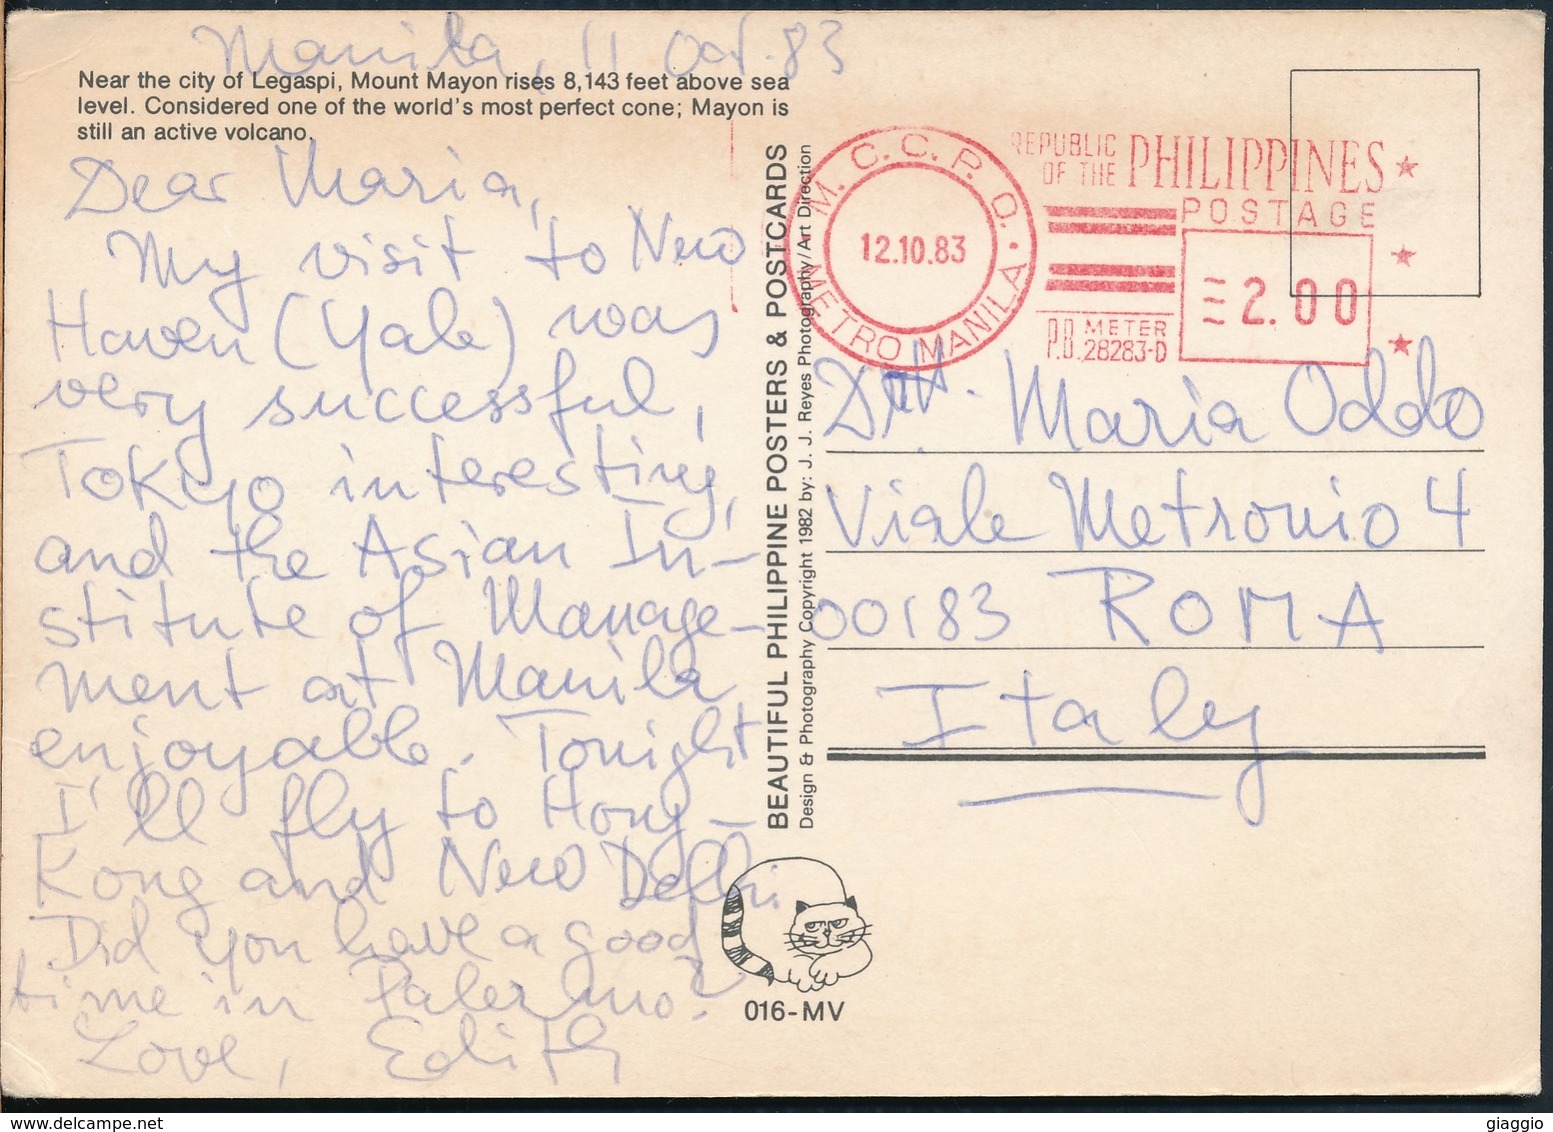 Manila, 11 Oct. 83
Near the city of Legaspi, Mount Mayon rises 8,143 feet above sea
level. Considered one of the world's most perfect cone; Mayon is
still an active volcano.
Dear Maria,
My visit to New
Haven (Yale) was
very successful,
Tokyo interesting,
and the Asian In-
stitute of Manage-
ment at Manila
enjoyable. Tonight
I'll fly to Hong-
Kong and New Delhi
Did you have a good
time in Palermo?
Love, Edith
BEAUTIFUL PHILIPPINE POSTERS & POSTCARDS
Design & Photography Copyright 1982 by: J. J. Reyes Photography/Art Direction
M. C. C. P. O.
METRO MANILA
12.10.83
REPUBLIC
OF THE PHILIPPINES
POSTAGE
2.00
P.B. METER
28283-D
Dott. Maria Oddo
Viale Metronio 4
00183 ROMA
Italy
016-MV
giaggio